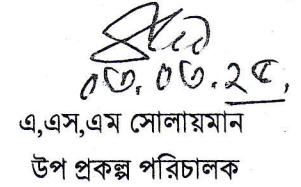 ০৩.০৩.২৫
এ,এস,এম সোলায়মান
উপ প্রকল্প পরিচালক